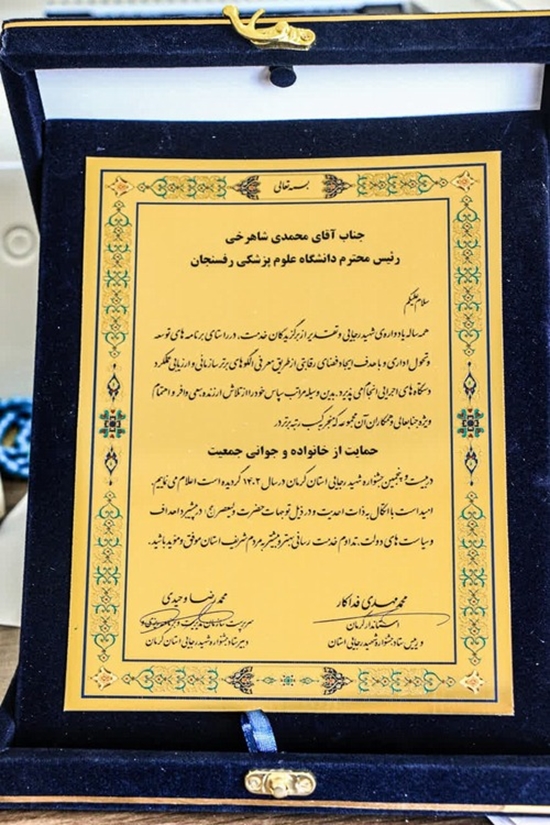 بسمه‌تعالی
جناب آقای محمدی شاهرخی
رئیس محترم دانشگاه علوم پزشکی رفسنجان
سلام علیکم
همه ساله یادواره‌ی شهید رجایی و تقدیر از برگزیدگان خدمت، در راستای برنامه های توسعه
و تحول اداری و با هدف ایجاد فضای رقابتی از طریق معرفی الگوهای برتر سازمانی و ارزیابی عملکرد
دستگاه های اجرایی انجام می پذیرد. بدین وسیله مراتب سپاس خود را از تلاش ارزنده، سعی وافر و اهتمام
ویژه جنابعالی و همکاران آن مجموعه که منجر به کسب رتبه برتر در
حمایت از خانواده و جوانی جمعیت
در بیست و پنجمین جشنواره شهید رجایی استان کرمان در سال ۱۴۰۲ گردیده است اعلام می نماییم.
امید است با اتکال به ذات احدیت و در ذیل توجهات حضرت ولیعصر (عج) در مسیر اهداف
و سیاست های دولت، تداوم خدمت رسانی بهتر و بیشتر به مردم شریف استان موفق و موید باشید.
محمدمهدی فداکار
استاندار کرمان
و رییس ستاد جشنواره شهید رجایی استان
محمدرضا وحیدی
سرپرست سازمان مدیریت و برنامه‌ریزی
و دبیر ستاد جشنواره شهید رجایی استان کرمان